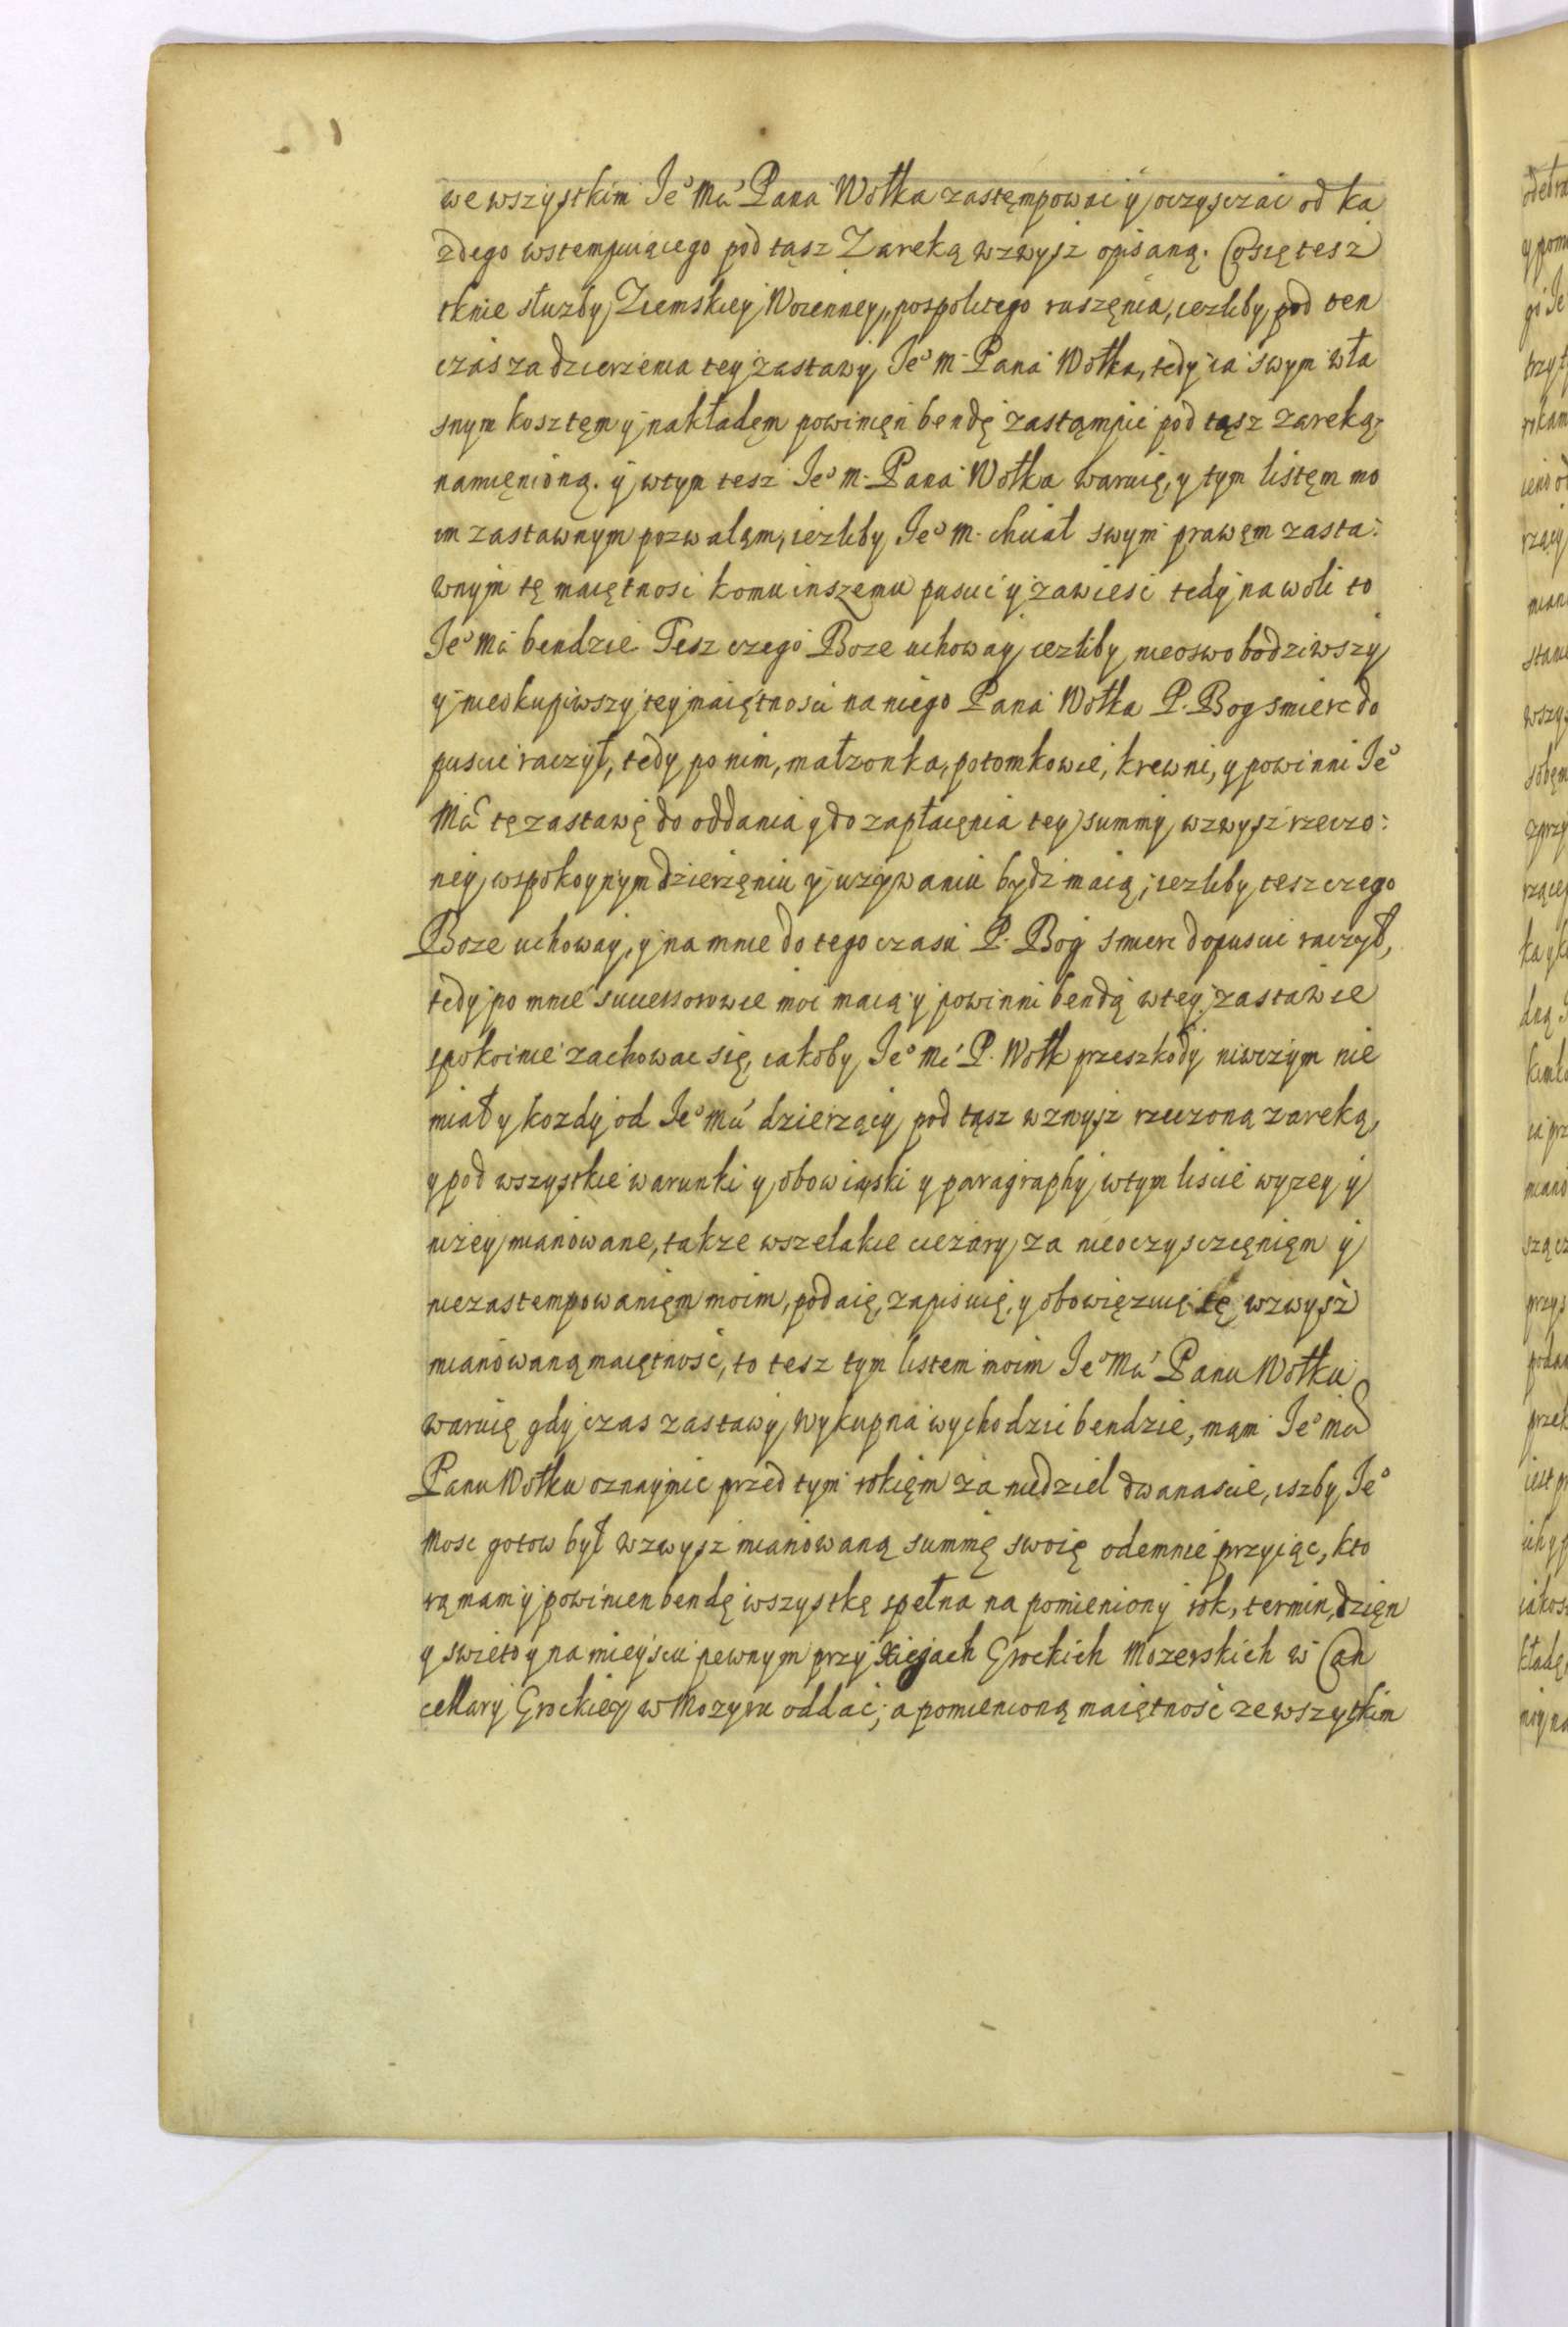 we wszystkim Je° Mci Pana Wołka zastępowac y oczysczac od ka
zdego wstempuiącego pod tąsz Zaręką wzwysz opisaną. Co się tesz
tknie słuzby Ziemskiey Woienney, pospolitego ruszęnia, iezliby pod ten
czas za dzierzenia tey zastawy, Je° M. Pana Wołka, tedy ia swym wła
snym kosztęm y nakładęm powinięn bendę zastąmpic pod tąsz zaręką,
namięnioną. y w tym tesz Je° M. Pana Wołka waruię, y tym listęm mo
im zastawnym pozwaląm, iezliby Je° M. chciał swym prawęm zasta:
wnym tę maiętnosc komu inszemu puscic y zawiesc tedy na woli to
Je° Mci bendzie Tesz czego Boze uchoway iezliby nieoswobodziwszy
y nieokupiwszy tey maiętnosci na niego Pana Wołka P. Bog smierc do
puscic raczył, tedy po nim, małzonka, potomkowie, krewni, y powinni Je°
Mci tę zastawę do oddania y do zapłacęnia tey summy wzwysz rzeczo:
ney w spokoynym dzierzęniu y uzywaniu bydz maią; iezliby tesz czego
Boze uchoway, y na mnie do tego czasu P. Bog smierc dopuscic raczył,
tedy po mnie successorowie moi maią y powinni bendą w tey zastawie
spokoinie zachowac się, iakoby Je° Mc P. Wołk przeszkody niwczym nie
miał y kozdy od Je° Mci dzierzący pod tąsz wzwysz rzeczoną zaręką,
y pod wszystkie warunki y obowiąski y paragraphy w tym liscie wyzey y
nizey mianowane, takze wszelakie ciezary za nieoczysczęnięm y
niezastempowanięm moim, podaię, zapisuię, y obowięzuię tę wzwysz
mianowaną maiętnosc, to tesz tym listem moim Je° Mci Panu Wołku
waruię gdy czas zastawy wykupna wychodzic bendzie, mąm Je° Mci
Panu Wołku oznaymic przed tym rokięm za niedziel dwanascie, iszby Je°
Mosc gotow był wzwysz mianowaną summę swoię odemnie przyiąc, kto
rą mam y powinien bendę wszystkę spełna na pomieniony rok, termin, dzięn
y swieto y na mieyscu pewnym przy xięgach Grockich Mozerskich w Can
cellary Grockiey w Mozyru oddac; a pomienioną maiętnosc ze wszytkim